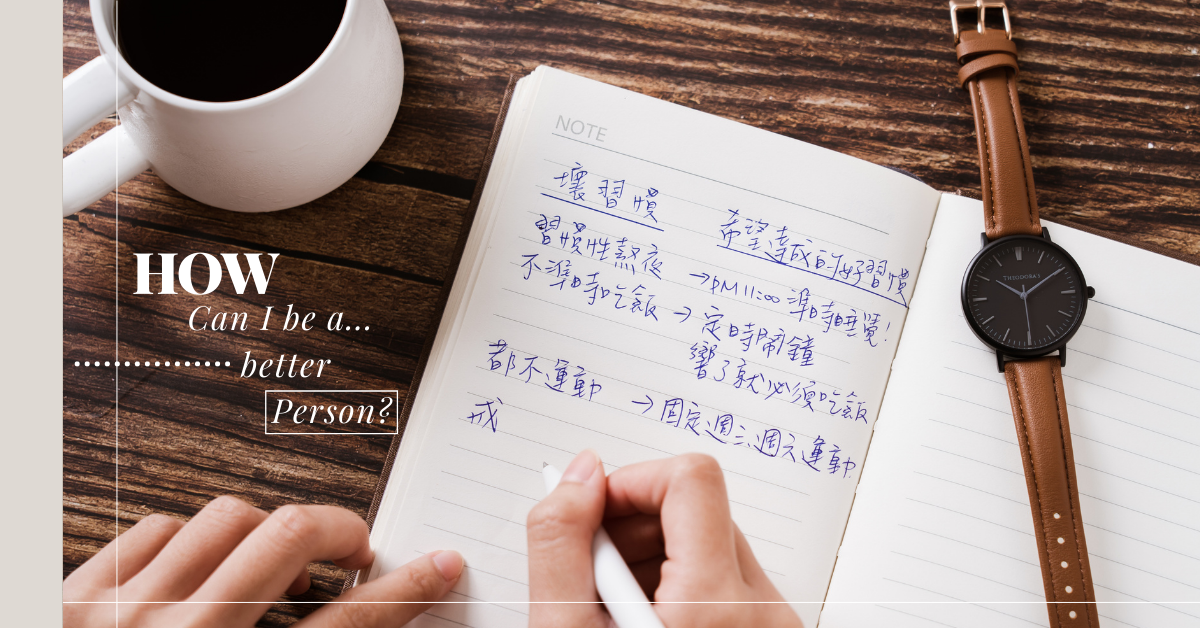 HOW
Can I be a...
better
Person?
NOTE
壞習慣
希望達成的好習慣
習慣性熬夜
→PM11:00 準時睡覺!
不準時吃飯
→定時鬧鐘
響了就必須吃飯
都不運動
→固定週三、週六運動
戒
THEODORA'S